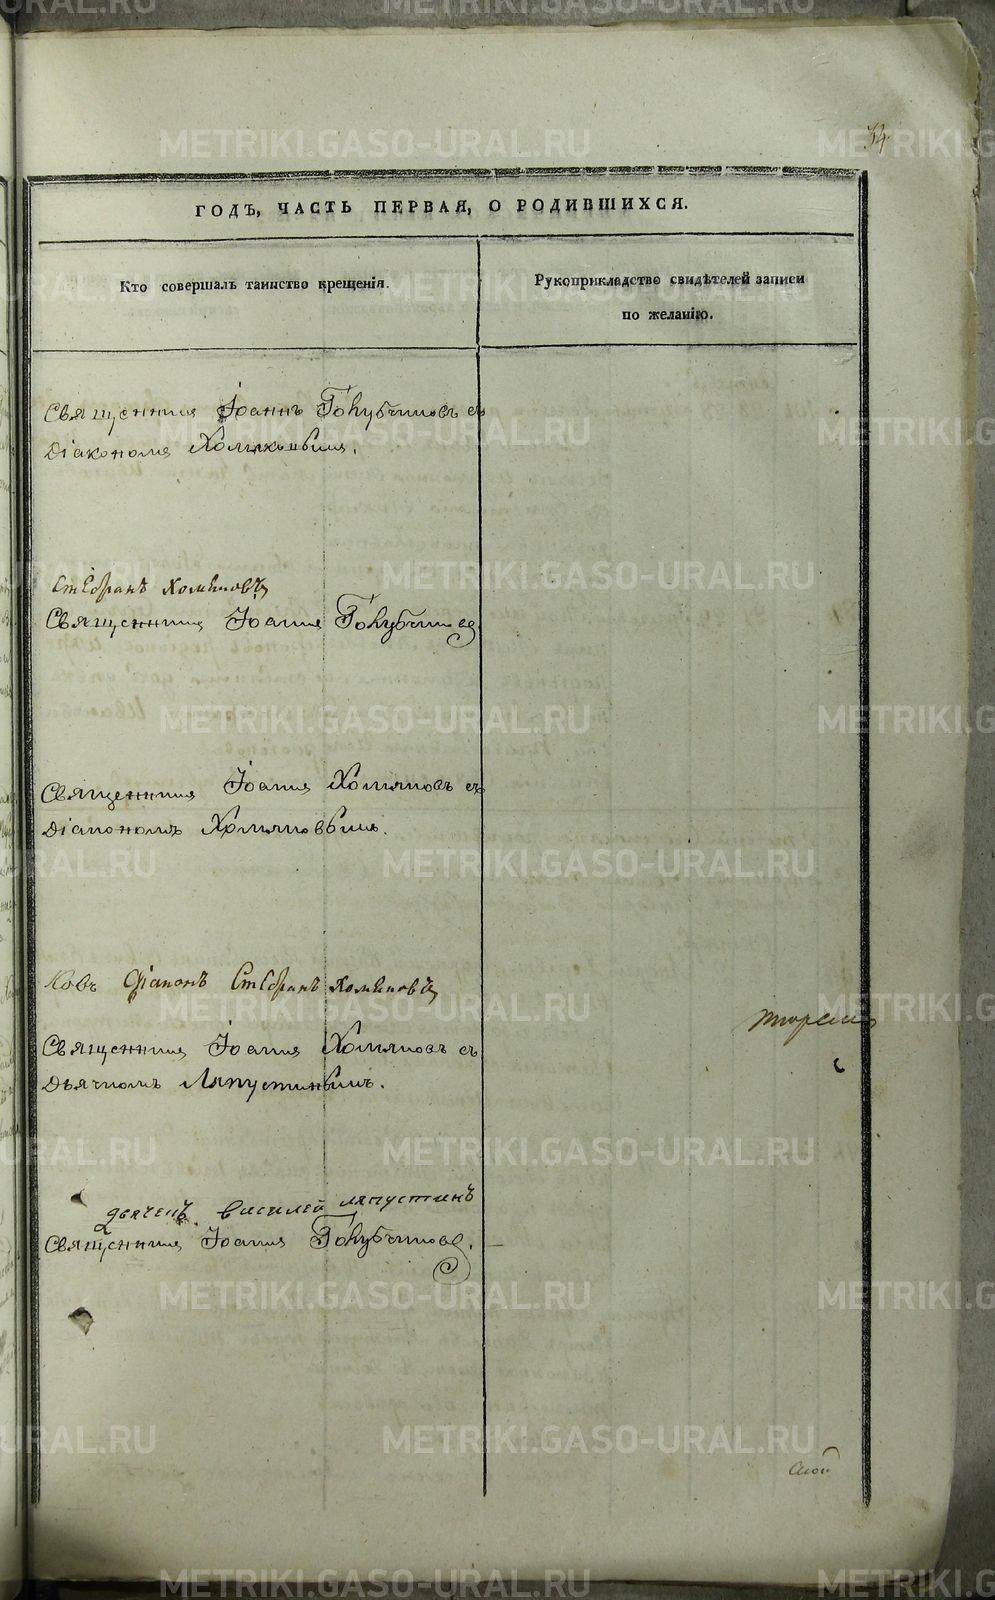 54
ГОДЪ, ЧАСТЬ ПЕРВАЯ, О РОДИВШИХСЯ.
Кто совершалъ таинство крещенія.
Рукоприкладство свидѣтелей записи
по желанію.
Священникъ Іоаннъ Голубчиковъ съ
Діакономъ Хомяковымъ.
Стефанъ Хомяковъ
Священникъ Іоаннъ Голубчиковъ
Священникъ Іоаннъ Хомяковъ съ
Діакономъ Хомяковымъ.
Діаконъ Стефанъ Хомяковъ
Священникъ Іоаннъ Хомяковъ съ
Дьячкомъ Ляпустинымъ.
дьячекъ василей ляпустинъ
Священникъ Іоаннъ Голубчиковъ.
METRIKI.GASO-URAL.RU